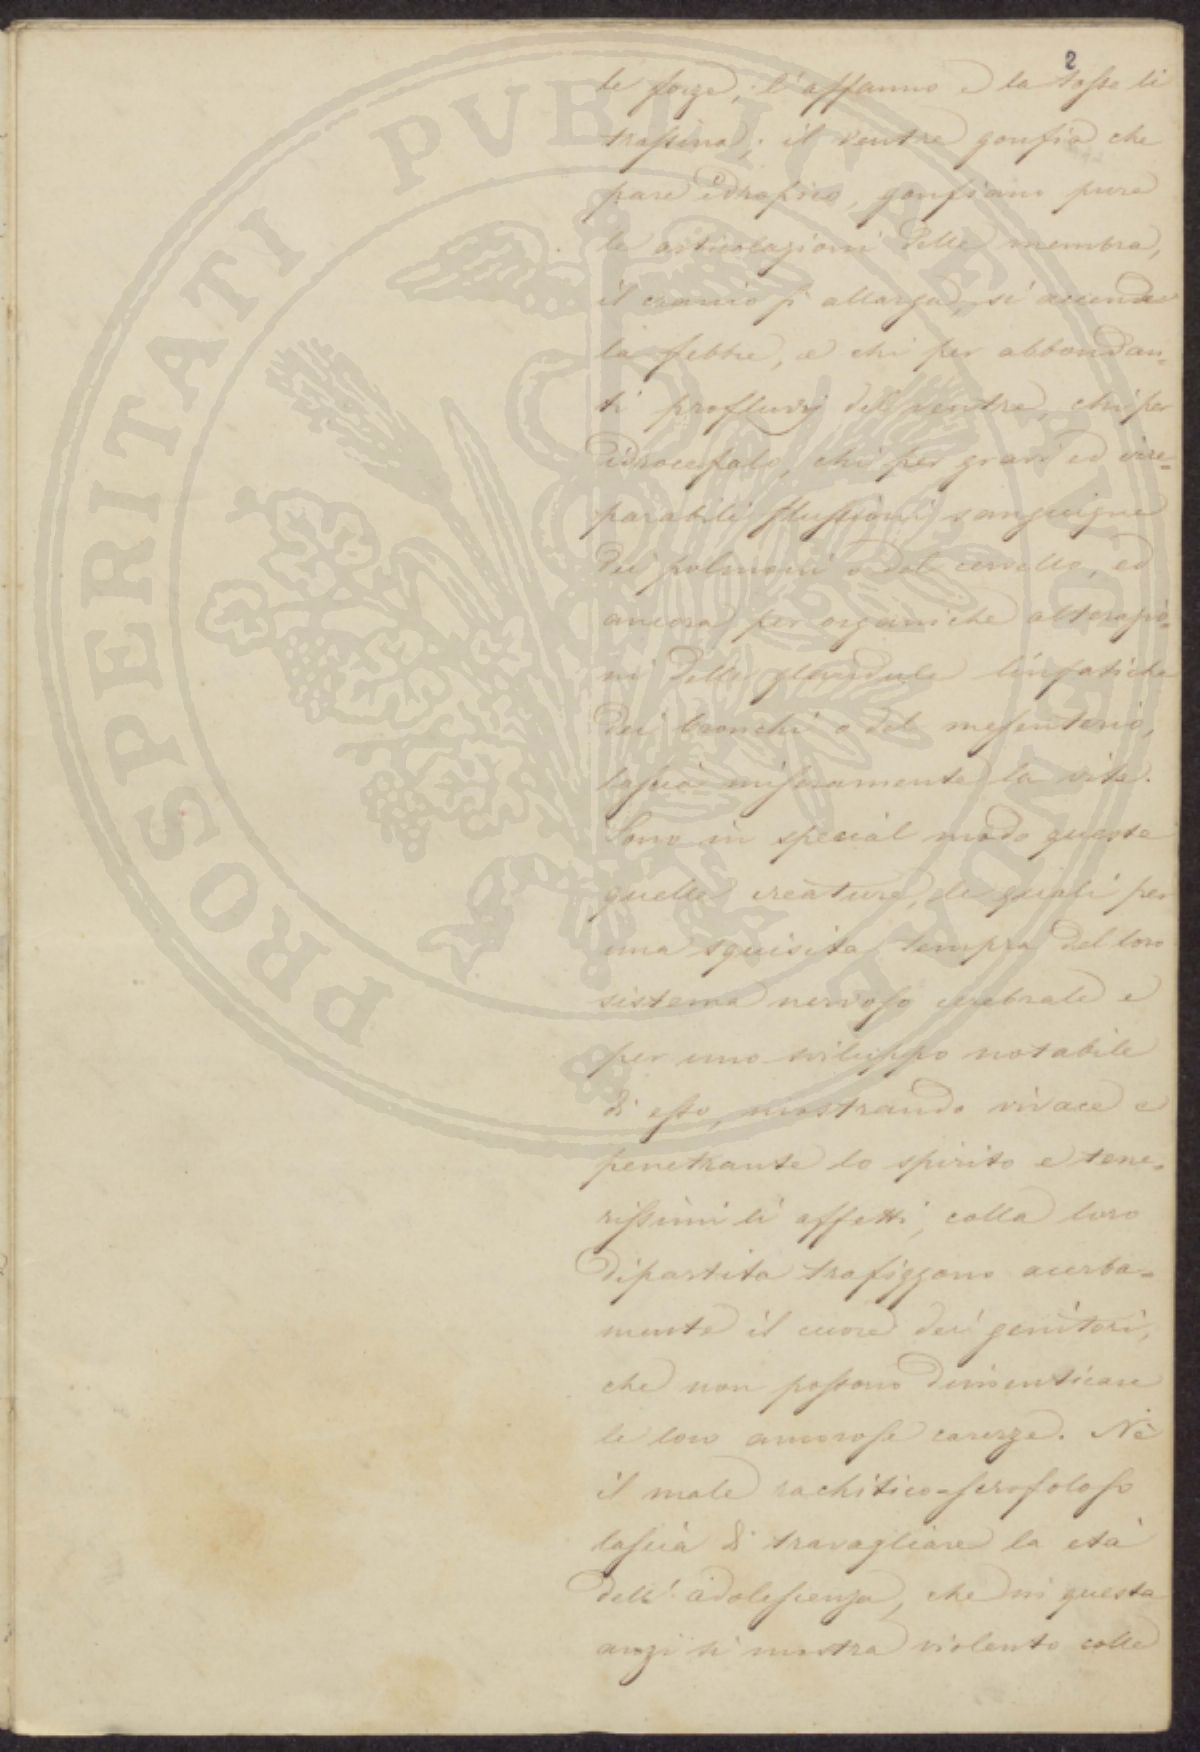 2
le forze, l'affanno e la tosse li
trassina; il ventre gonfia che
pare idropico, gonfiano pure
le articolazioni delle membra,
il cranio si allarga, si accende
la febbre, e chi per abbondan=
ti profluvj del ventre, chi per
idrocefalo, chi per gravi ed irre=
parabili flussioni sanguigne
dei polmoni o del cervello, ed
ancora per organiche alterazio=
ni delle glandule linfatiche
dei bronchi o del mesenterio,
lascia miseramente la vita.
Sono in special modo queste
quelle creature, le quali per
una squisita tempra del loro
sistema nervoso cerebrale e
per uno sviluppo notabile
di esso, mostrando vivace e
penetrante lo spirito e tene=
rissimi li affetti, colla loro
dipartita trafiggono acerba=
mente il cuore dei genitori,
che non possono dimenticare
le loro amorose carezze. Nè
il male rachitico=scrofoloso
lascia di travagliare la età
dell'adolescenza, che in questa
anzi si mostra violento colle
PROSPERITATI PVBLICAE AVGENDAE